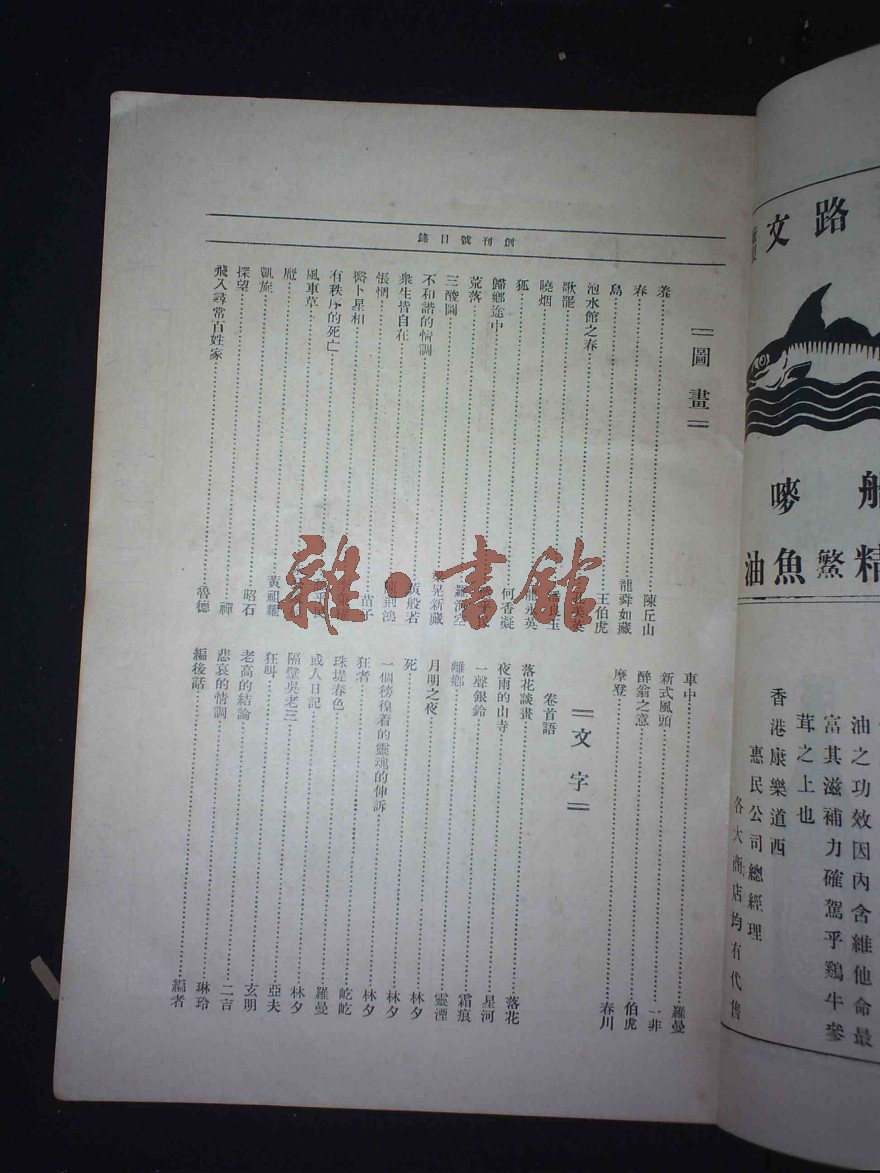 創刊號目錄
圖畫
陳丘山
春 龍舜如藏
鳥 王伯虎
泡水館之春
歌罷 良玉
曉烟 永英
狐 何香凝
歸鄉途中
荒落 羅海空
三酸圖 晃新藏
不和諧的情調 黃般若
衆生皆自在 荊鴻
張惆 苗子
醫卜星相
有秩序的死亡
風車草
魘 黃祖耀
凱旋 昭石
探望 禪
飛入尋常百姓家 魯德
車中 羅曼
新式風頭 一非
醉翁之意 伯虎
摩登 春川
文字
卷首語
落花談畫 落花
夜雨的山寺 星河
一聲銀鈴 霜痕
離鄉 靈湮
月明之夜 林夕
死 林夕
一個徬徨着的靈魂的伸訴 林夕
狂者 屹屹
珠堤春色 羅曼
或人日記 林夕
隔壁吳老三 亞夫
狂叫 玄明
老高的結論 二吉
悲哀的情調 琳玲
編後話 編者
雜·書館
路文
嘜
精鰵魚油
油之功效因內含維他命最
富其滋補力確駕乎鷄牛參
茸之上也
香港康樂道西
惠民公司總經理
各大商店均有代售